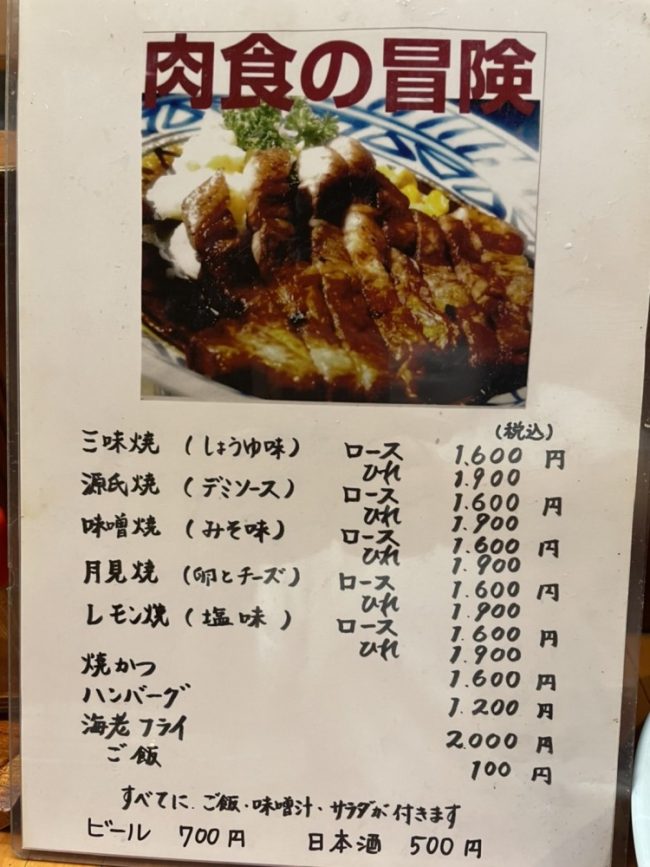 肉食の冒険
(税込)
三味焼 (しょうゆ味) ロース 1.600 円
ひれ 1.900
源氏焼 (デミソース) ロース 1.600 円
ひれ 1.900
味噌焼 (みそ味) ロース 1.600 円
ひれ 1.900
月見焼 (卵とチーズ) ロース 1.600 円
ひれ 1.900
レモン焼 (塩味) ロース 1.600 円
ひれ 1.900
焼かつ 1.600 円
ハンバーグ 1.200 円
海老フライ 2.000 円
ご飯 100 円
すべてに ご飯・味噌汁・サラダが付きます
ビール 700円 日本酒 500円